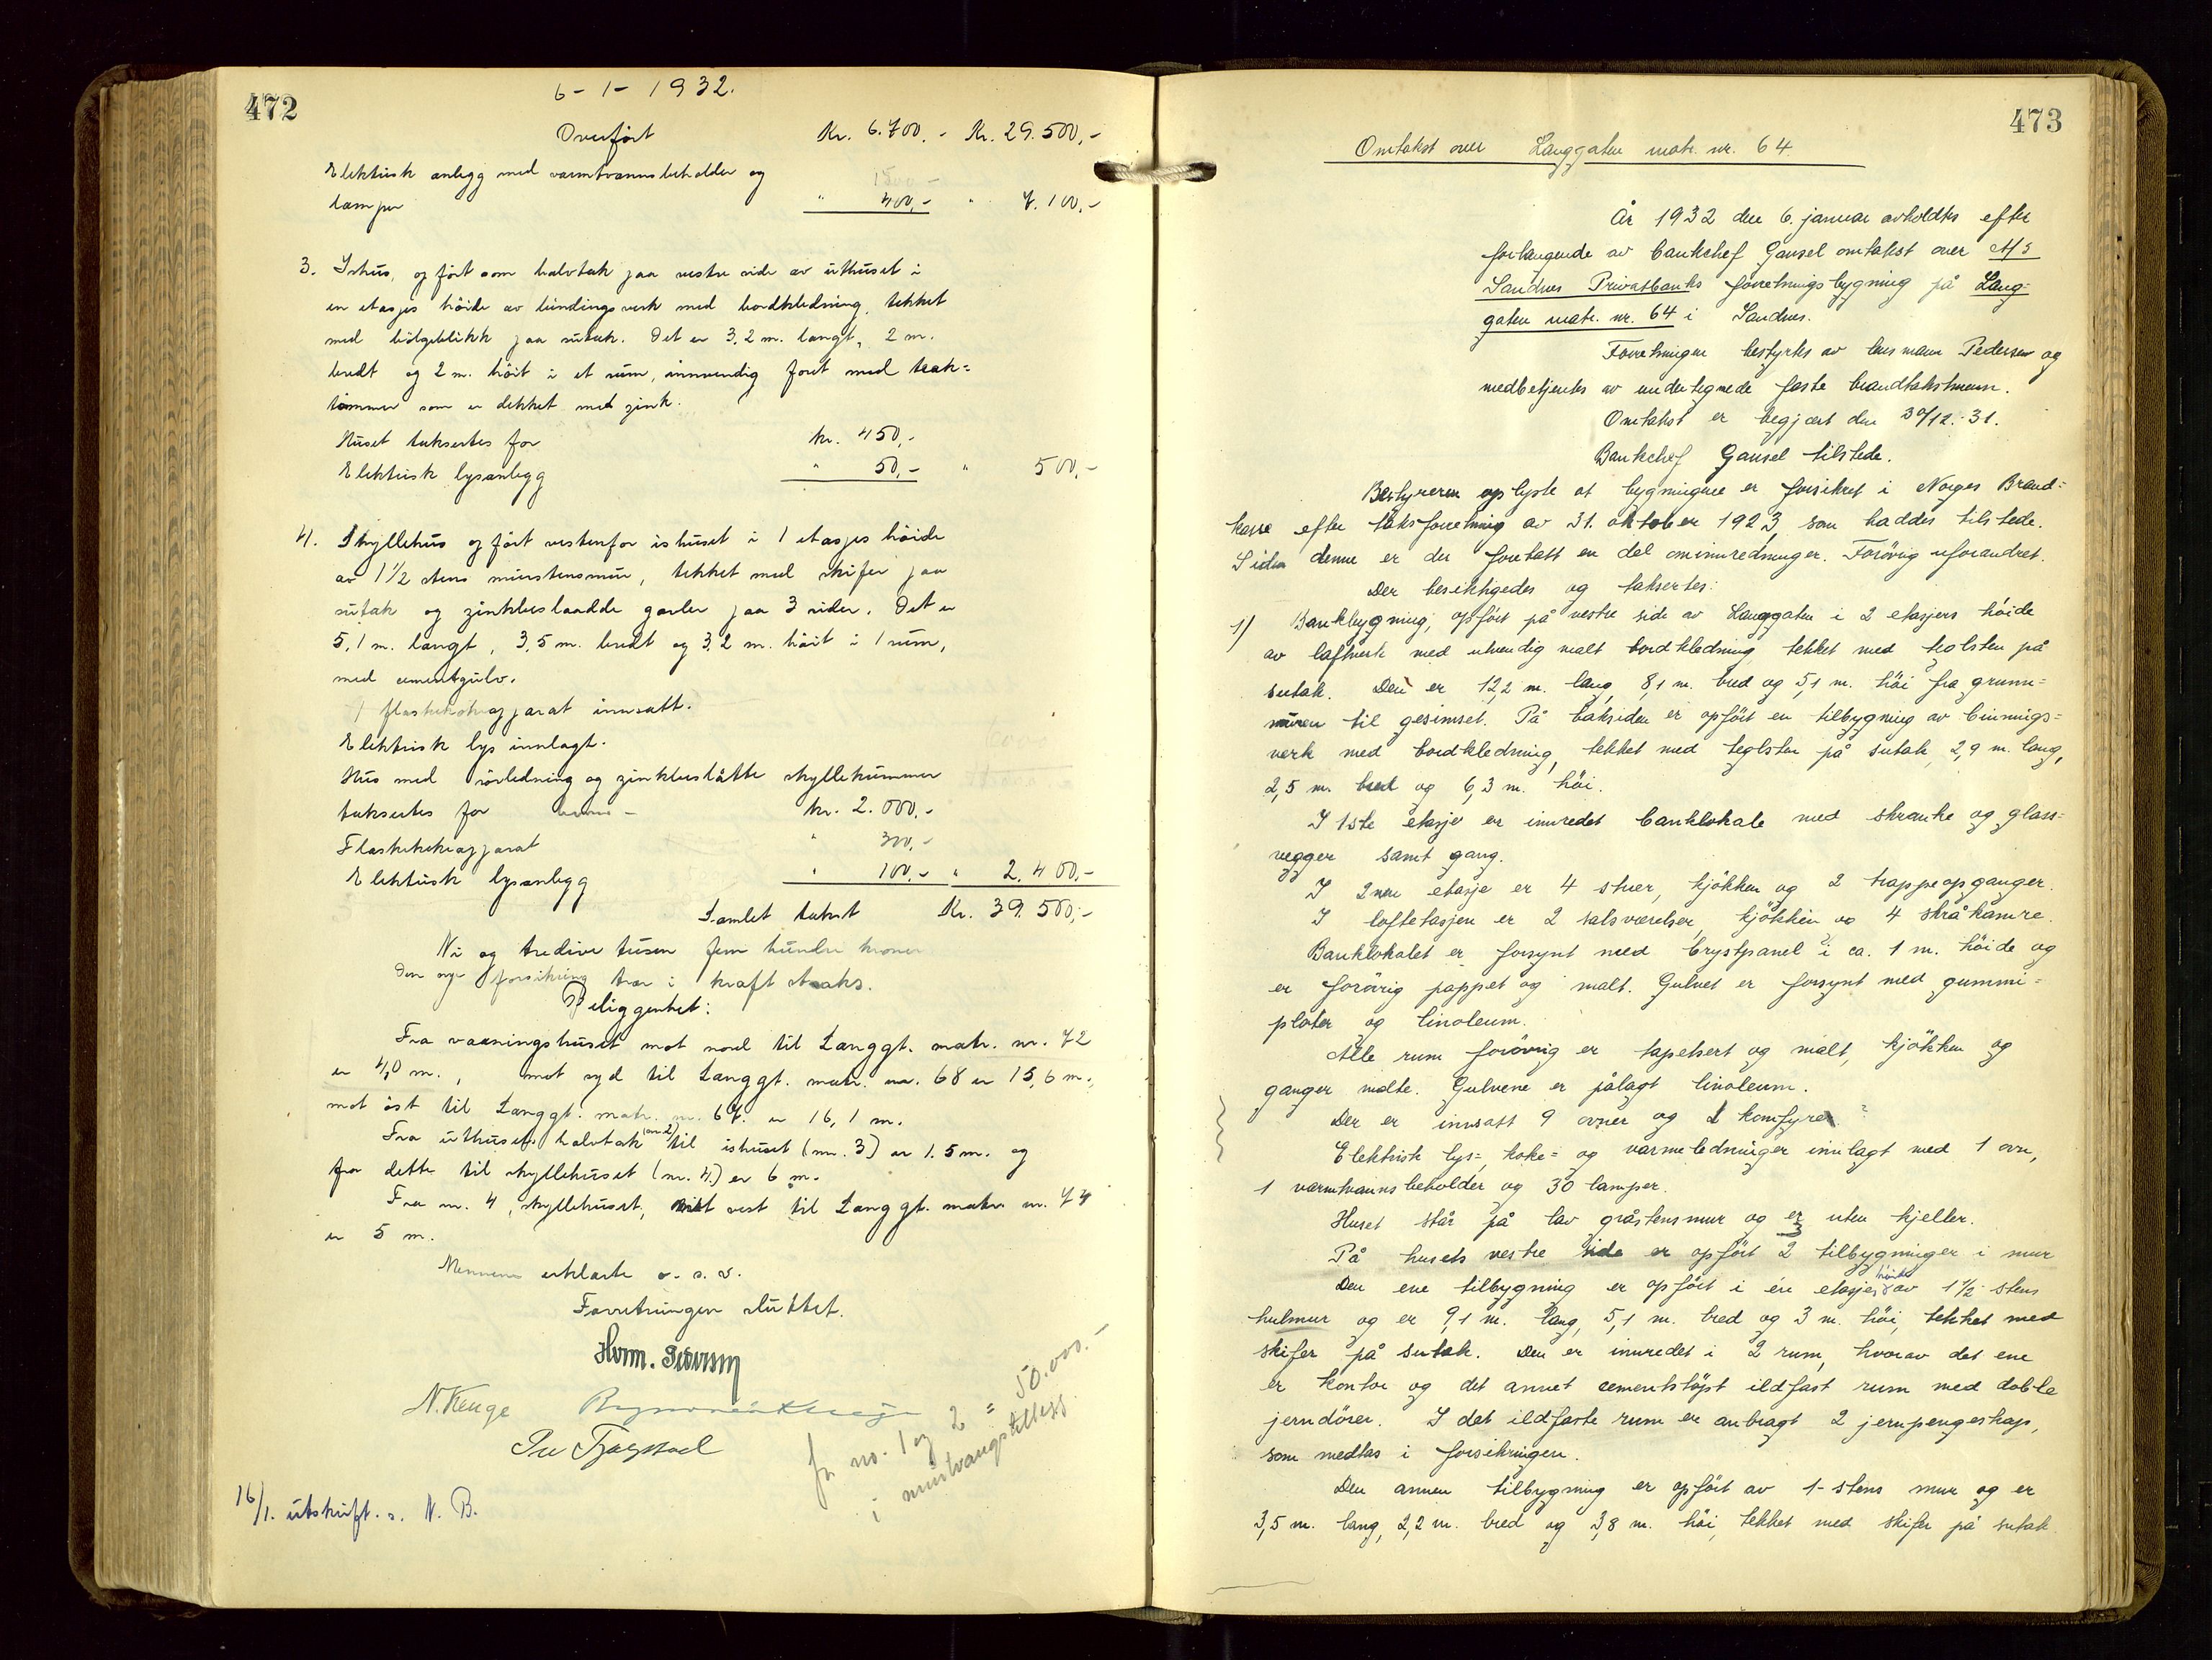 472
6-1-1932.
Overført Kr. 6.700.- Kr. 29.500,-
Elektrisk anlegg med varmtvannsbeholder og 1500.-
lamper " 400,- " 7.100,-
3. Ishus, opført som halvtak paa vestre side av uthuset i
en etasjes höide av bindingsverk med bordkledning, tekket
med bölgeblikk paa sutak. Det er 3,2 m. langt, 2 m.
bredt og 2 m. höit i et rum, innvendig foret med trak=
tömmer som er dekket med zink.
Huset takseres for kr. 450,-
Elektrisk lysanlegg " 50,- " 500,-
4. Skyllehus opfört vestenfor ishuset i 1 etasjes höide
av 1½ stens murstensmur, tekket med skifer paa
sutak og zinkbeslaadde gavler paa 3 sider. Det er
5,1 m. langt, 3,5 m. bredt og 3,2 m. höit i 1 rum,
med cementgulv.
1 flaskekokeapparat innsatt.
Elektrisk lys innlagt.
Hus med rörledning og zinkbeslåtte skyllekummer
takseres for kr. 2.000,-
Flaskekokeapparat " 300,-
Elektrisk lysanlegg " 100,- " 2.400,-
Samlet takst Kr. 39.500,-
Ni og tredive tusen fem hundre kroner
Den nye forsikring trær i kraft straks.
Beliggenhet:
Fra vaaningshuset mot nord til Langgt. matr. nr. 72
er 4,0 m., mot syd til Langgt. matr. nr. 68 er 15,6 m.,
mot öst til Langgt. matr. nr. 67. er 16,1 m.
Fra uthusets halvtak (nr. 2) til ishuset (nr. 3) er 1.5 m. og
fra dette til skyllehuset (nr. 4.) er 6 m.
Fra nr. 4, skyllehuset, mot vest til Langgt. matr. nr. 74
er 5 m.
Mennene erklærte o. s. v.
Forretningen sluttet.
Homm. Pedersen
N. Kenge
Per Tjagstad
for no. 1 og 2 = 50.000.-
i murtvangstillegg
16/1. utskrift. s. N. B.
473
Omtakst over Langgaten matr. nr. 64
År 1932 den 6. januar avholdtes efter
forlangende av bankchef Gausel omtakst over A/S
Sandnes Privatbanks forretningsbygning på Lang=
gaten matr. nr. 64 i Sandnes.
Forretningen bestyrtes av lensmann Pedersen og
medbetjentes av undertegnede faste brandtakstmenn.
Omtakst er begjært den 30/12.-31.
Bankchef Gausel tilstede.
Bestyreren oplyste at bygningene er forsikret i Norges Brand=
kasse efter taksforretning av 31. oktober 1923 som haddes tilstede.
Siden denne er der foretatt en del ominnredninger. Forövrig uforandret.
Der besiktigedes og taksertes:
1) Bankbygning, opfört på vestre side av Langgaten i 2 etasjers höide
av laftverk med utvendig malt bordkledning tekket med teglsten på
sutak. Den er 12,2 m. lang, 8,1 m. bred og 5,1 m. höi fra grunn=
muren til gesimset. På baksiden er opfört en tilbygning av binnings=
verk med bordkledning, tekket med teglsten på sutak, 2,9 m. lang,
2,5 m. bred og 6,3 m. höi.
I 1ste etasje er innredet banklokale med skranke og glass=
vegger samt gang.
I 2nen etasje er 4 stuer, kjökken og 2 trappeopganger.
I loftetasjen er 2 salsværelser, kjökken og 4 skråkamre.
Banklokalet er forsynt med brystpanel i ca. 1 m. höide og
er forövrig pappet og malt. Gulvet er forsynt med gummi=
plater og linoleum.
Alle rum forövrig er tapetsert og malt, kjökken og
ganger malte. Gulvene er pålagt linoleum.
Der er innsatt 9 ovner og 2 komfyrer ?
Elektrisk lys-, koke= og varmeledninger innlagt med 1 ovn,
1 varmtvannsbeholder og 30 lamper.
Huset står på lav gråstensmur og er uten kjeller.
På husets vestre side er opfört 2 3 tilbygninger i mur
Den ene tilbygning er opfört i én etasjes höide av 1½ stens
hulmur og er 9,1 m. lang, 5,1 m. bred og 3 m. höi, tekket med
skifer på sutak. Den er innredet i 2 rum, hvorav det ene
er kontor og det annet cementstöpt ildfast rum med doble
jerndörer. I det ildfaste rum er anbragt 2 jernpengeskap,
som medtas i forsikringen.
Den annen tilbygning er opfört av 1-stens mur og er
3,5 m. lang, 2,2 m. bred og 3,8 m. höi, tekket med skifer på sutak